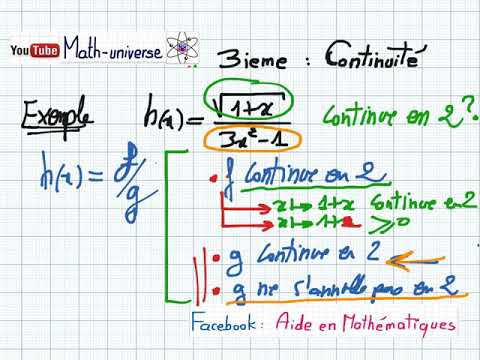 You Tube Math-universe
3ieme : Continuité
Exemple h(x) = √(1+x) / (3x²-1) continue en 2?
h(x) = f/g
• f continue en 2
x ↦ 1+x continue en 2
x ↦ 1+2 ≥ 0
• g continue en 2
• g ne s'annulle pas en 2
Facebook: Aide en Mathématiques